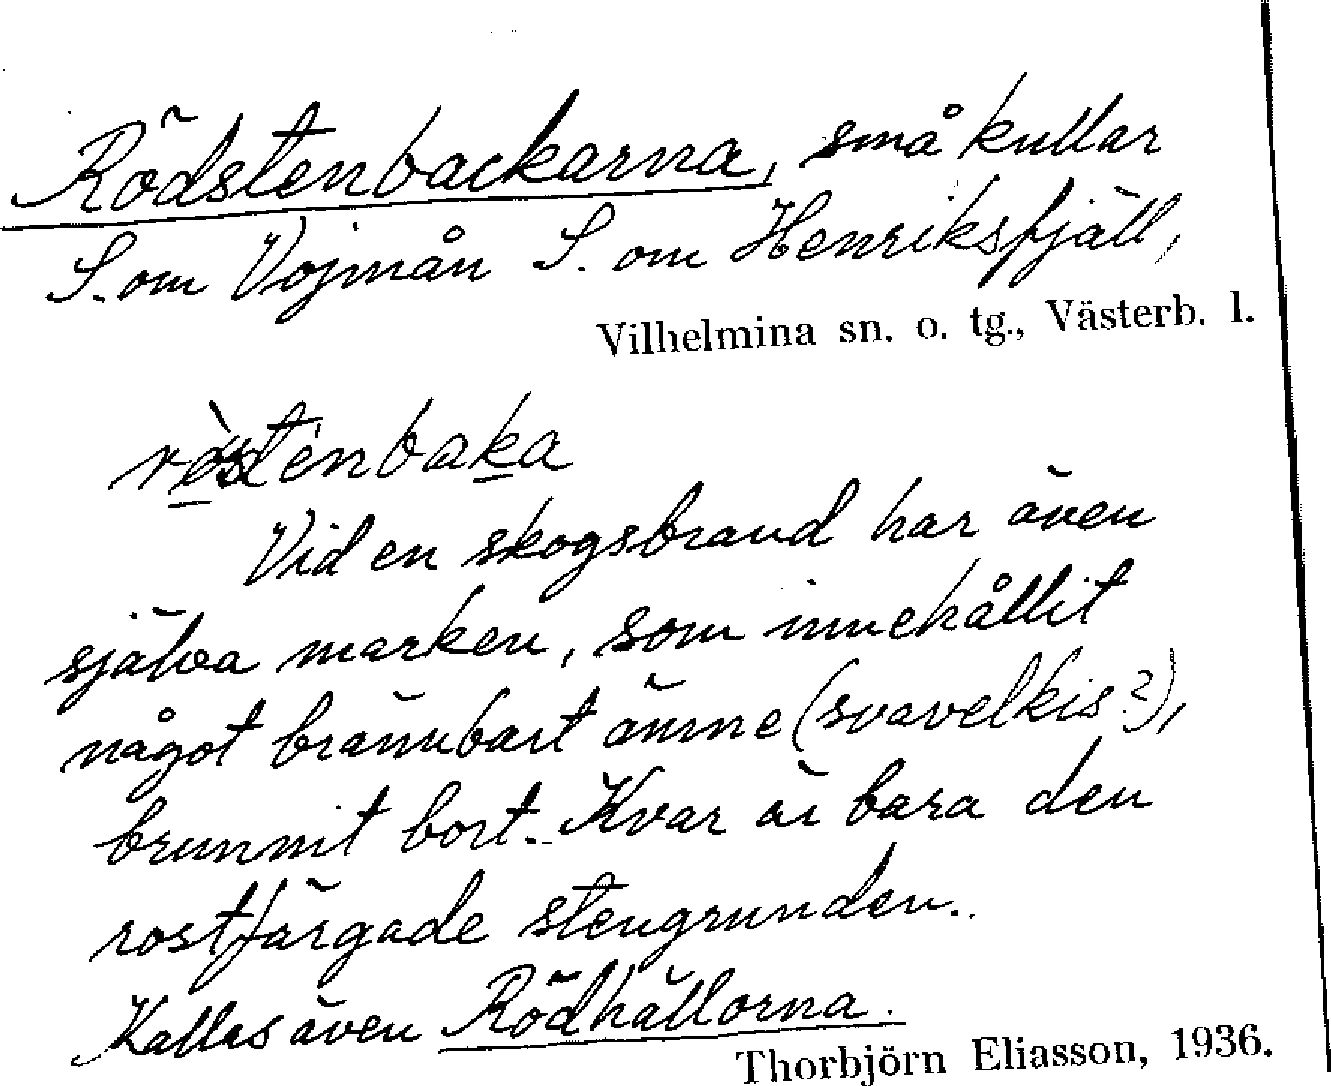 Rödstenbackarna, små kullar
S. om Vojmån S. om Henriksfjäll,
Vilhelmina sn. o. tg., Västerb. l.
Vid en skogsbrand har även
själva marken, som innehållit
något brännbart ämne (svavelkis?),
brunnit bort. Kvar är bara den
rostfärgade stengrunden.
Kallas även Rödhällorna.
Thorbjörn Eliasson, 1936.